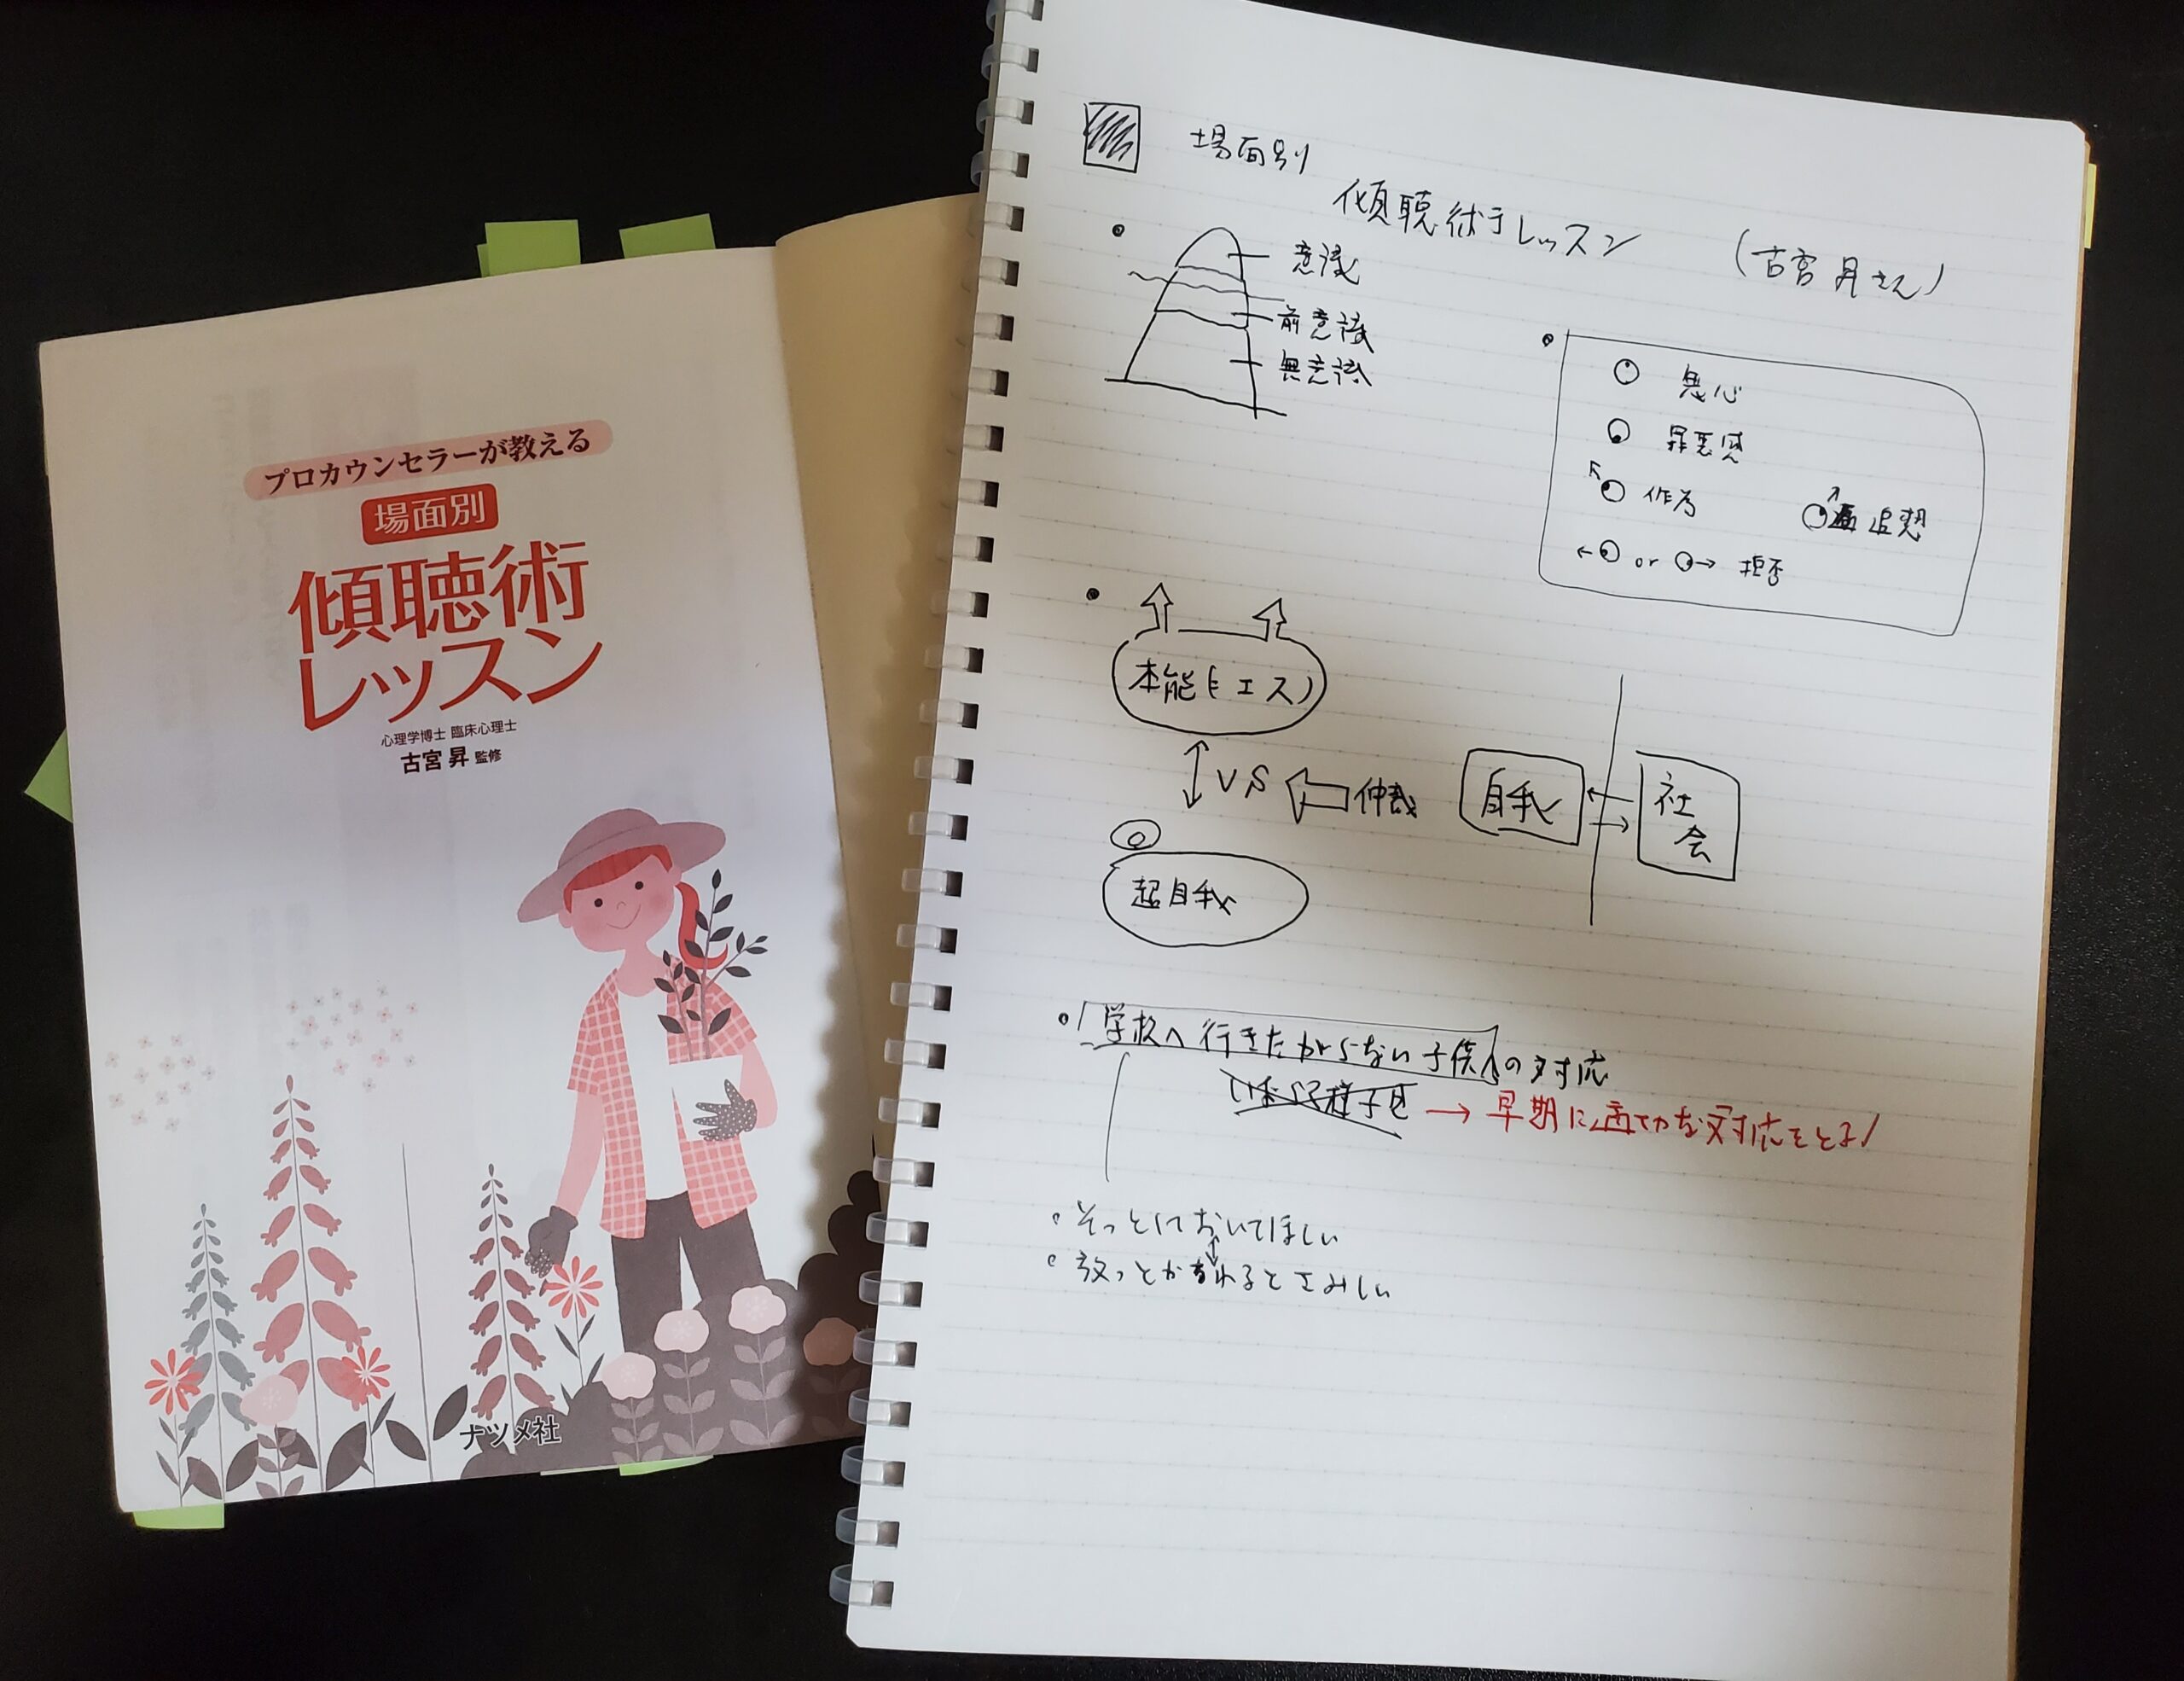 プロカウンセラーが教える
場面別
傾聴術
レッスン
心理学博士 臨床心理士
古宮 昇 監修
ナツメ社
場面別
傾聴術レッスン (古宮昇さん)
意識
前意識
無意識
無心
罪悪感
作為
追想
or 拒否
本能(エス)
VS 仲裁
自我
社会
超自我
学校へ行きたがらない子供への対応
しばらく様子見 → 早期に適切な対応をとる!
そっとしておいてほしい
放っとかれるとさみしい